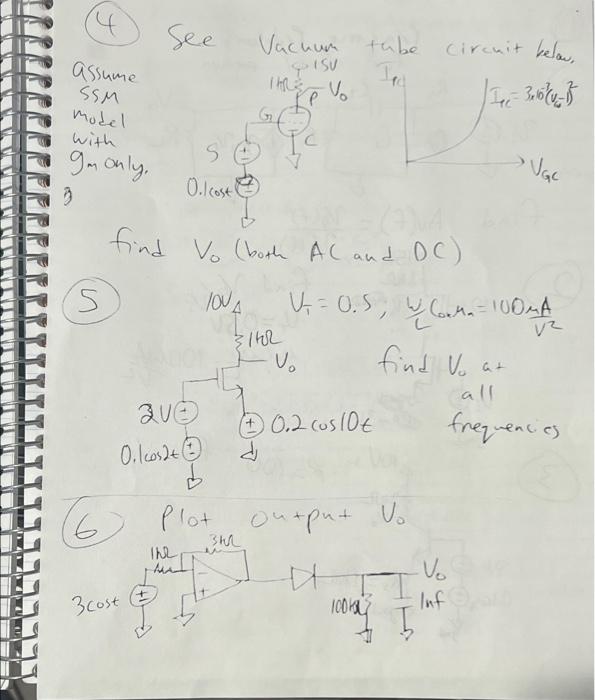 4 See Vacuum tube circuit below,
assume
SSM
model
with
gm only.
15V
1kΩ
P Vo
G
C
5
0.1cost
IPC
IPC = 3x10⁻³(VGC-1)²
VGC
find Vo (both AC and DC)
5
10V
VT = 0.5, W/L Cox μn = 100 μA/V²
1kΩ
Vo
find Vo at
all
frequencies
2V
0.2 cos10t
0.1cos2t
6 Plot output Vo
1kΩ
3kΩ
-
+
3cost
100kΩ
1nf
Vo